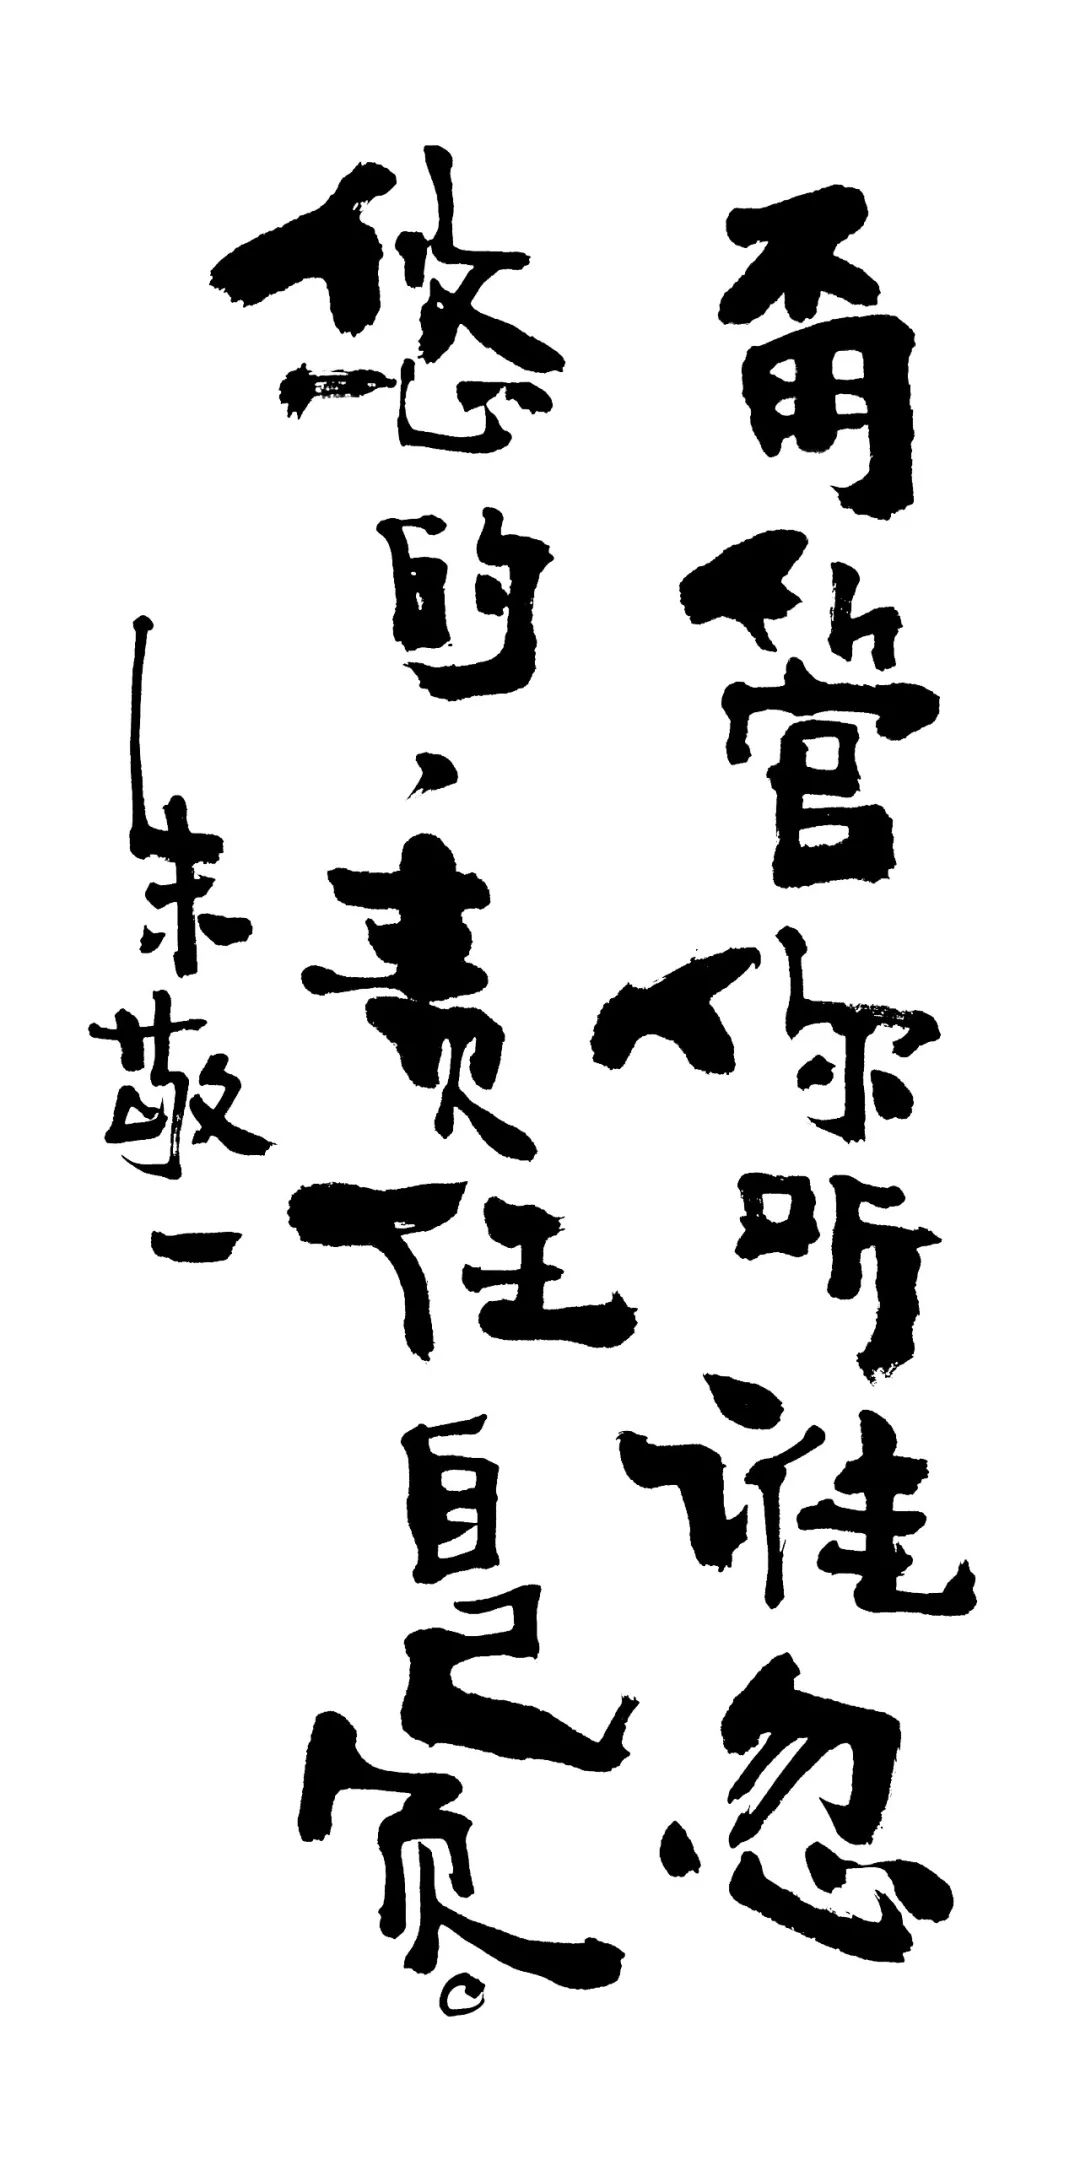 甭管你听谁忽
悠的，责任自己负。
朱敬一